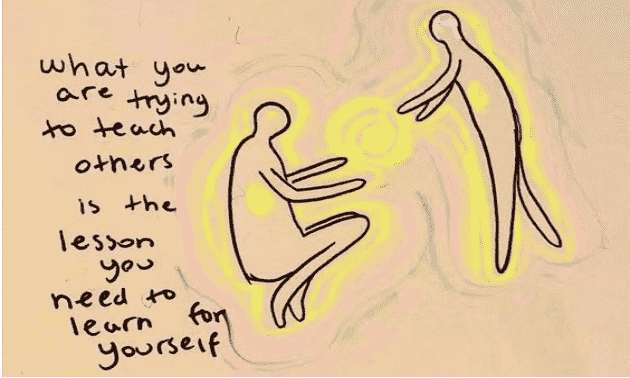 what you
are trying
to teach
others
is the
lesson
you
need to
learn for
yourself